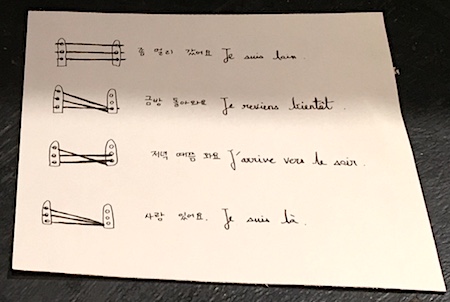 좀 멀리 갔어요 Je suis loin.
금방 돌아와요 Je reviens bientôt.
저녁 때쯤 와요 J'arrive vers le soir.
사람 있어요. Je suis là.